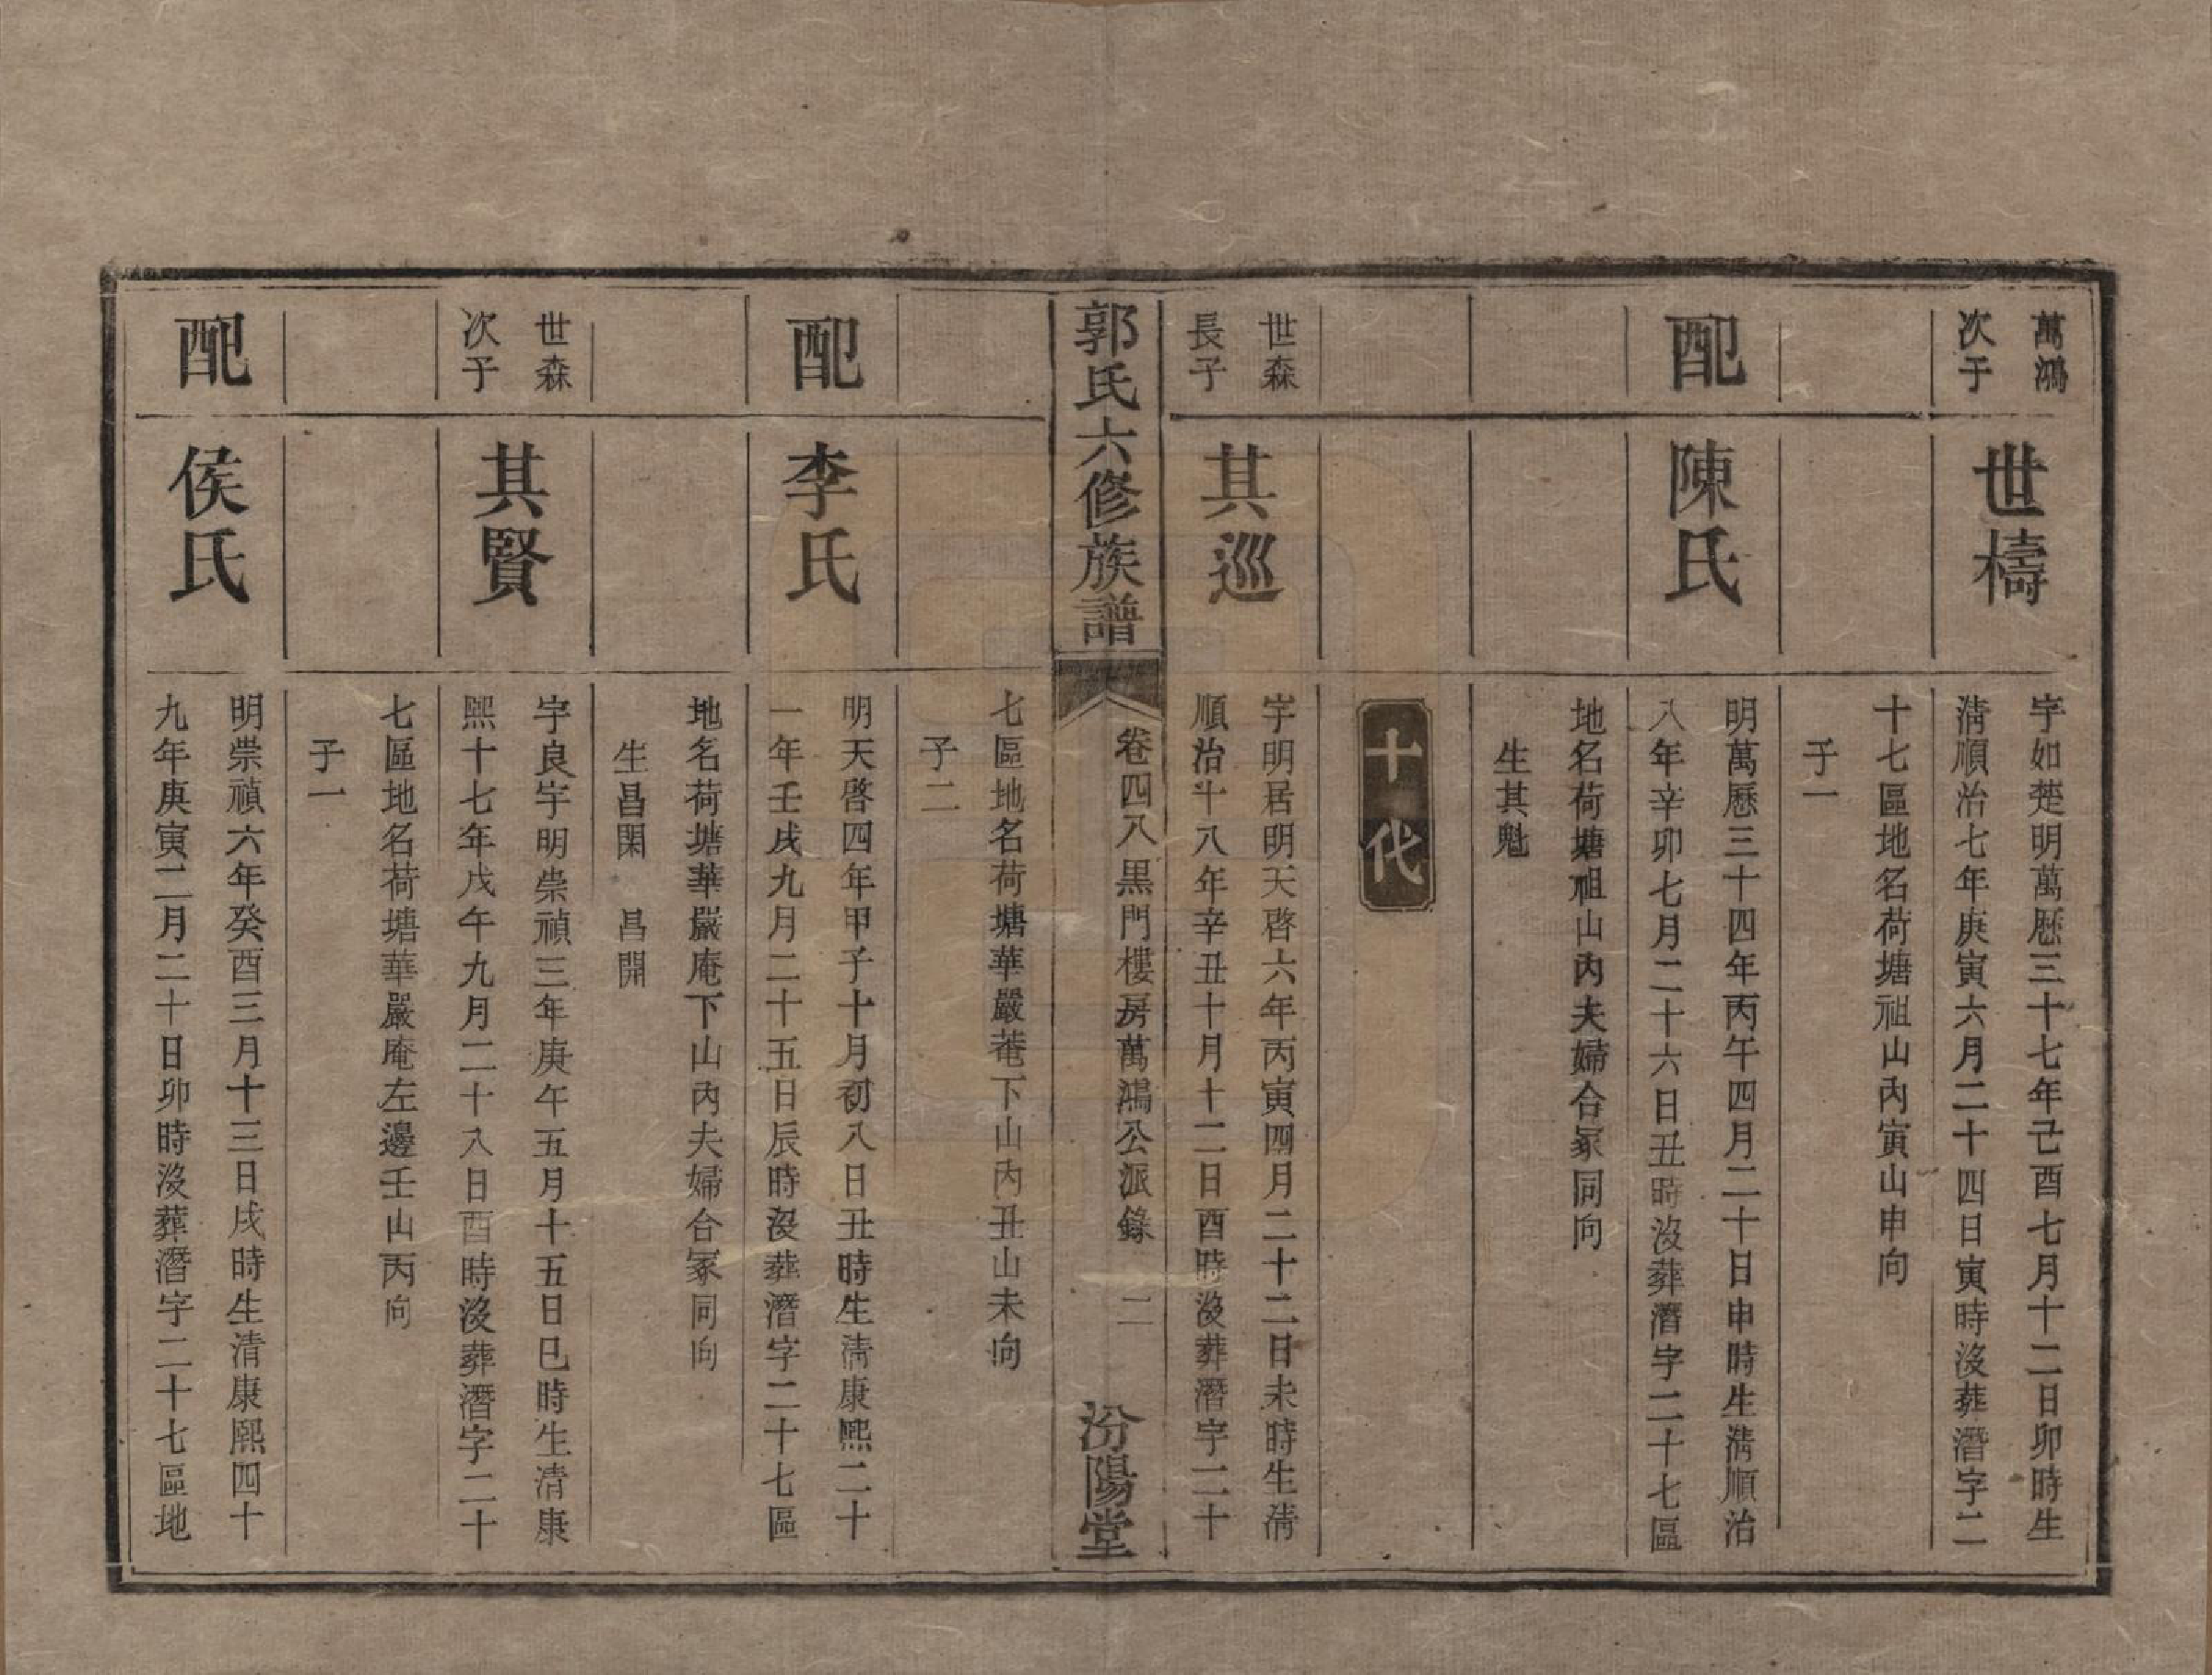 萬鴻
次子
世檮
字如楚明萬歷三十七年己酉七月十二日卯時生
淸順治七年庚寅六月二十四日寅時沒葬潛字二
十七區地名荷塘祖山內寅山申向
子一
配
陳氏
明萬歷三十四年丙午四月二十日申時生淸順治
八年辛卯七月二十六日丑時沒葬潛字二十七區
地名荷塘祖山內夫婦合冢同向
生其魁
十代
世森
長子
其巡
字明居明天啓六年丙寅四月二十二日未時生淸
順治十八年辛丑十月十二日酉時沒葬潛字二十
郭氏六修族譜
卷四八黑門樓房萬鴻公派錄
二
汾陽堂
七區地名荷塘華嚴菴下山內丑山未向
子二
配
李氏
明天啓四年甲子十月初八日丑時生淸康熙二十
一年壬戌九月二十五日辰時沒葬潛字二十七區
地名荷塘華嚴庵下山內夫婦合冢同向
生昌閑 昌開
世森
次子
其賢
字良宇明崇禎三年庚午五月十五日巳時生清康
熙十七年戊午九月二十八日酉時沒葬潛字二十
七區地名荷塘華嚴庵左邊壬山丙向
子一
配
侯氏
明崇禎六年癸酉三月十三日戌時生清康熙四十
九年庚寅二月二十日卯時沒葬潛字二十七區地